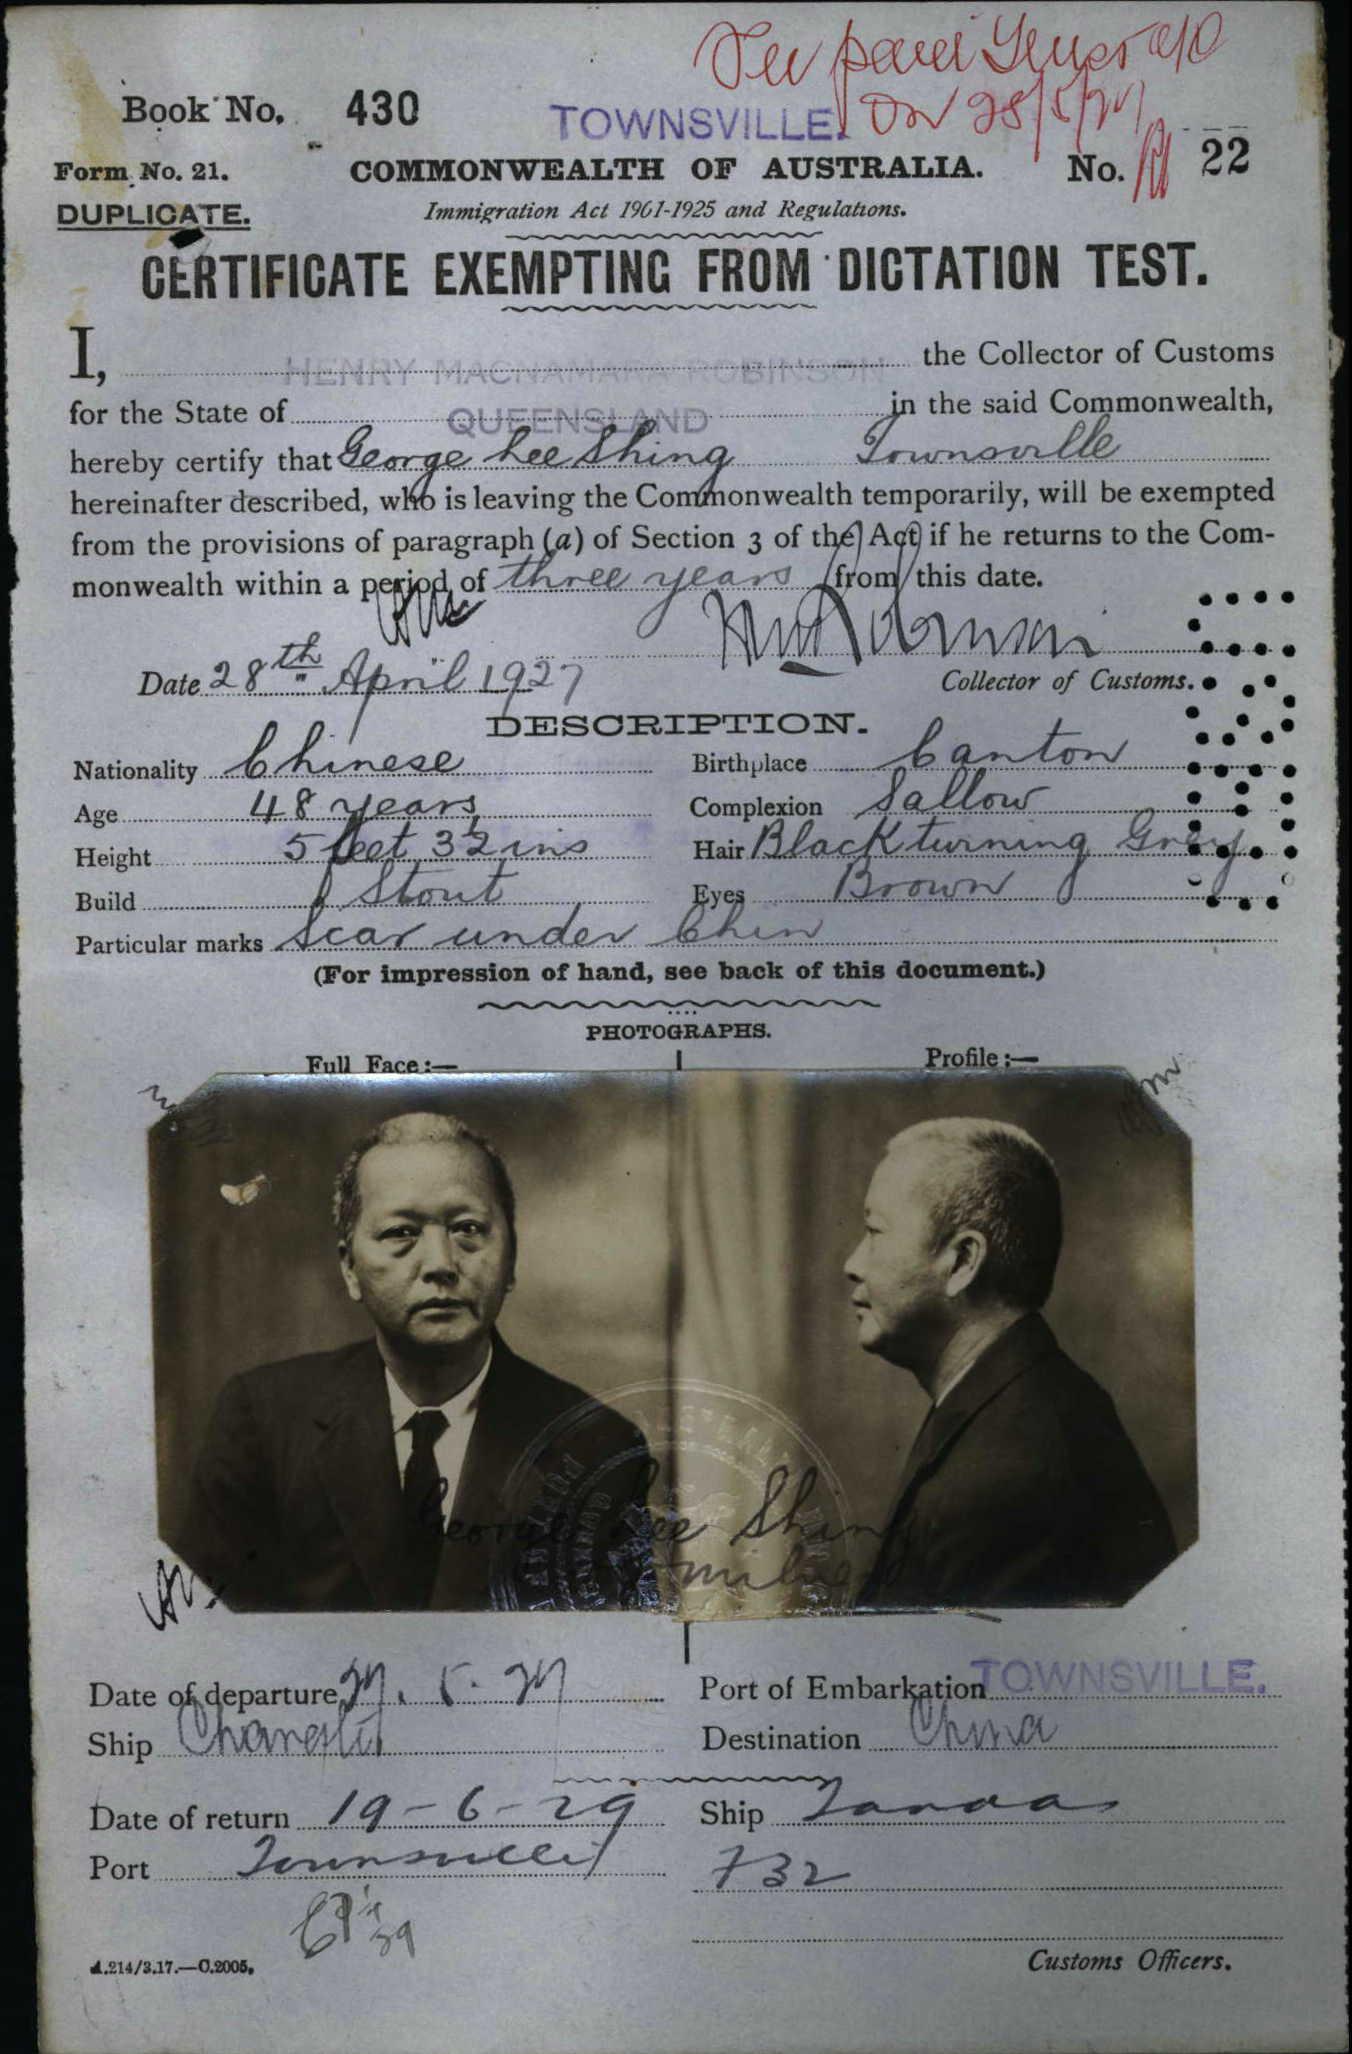 Book No. 430
TOWNSVILLE.
on 28/5/27
Form No. 21.
COMMONWEALTH OF AUSTRALIA.
No. 22
DUPLICATE.
Immigration Act 1901-1925 and Regulations.
CERTIFICATE EXEMPTING FROM DICTATION TEST.
I, HENRY MACNAMARA ROBINSON the Collector of Customs
for the State of QUEENSLAND in the said Commonwealth,
hereby certify that George Lee Shing Townsville
hereinafter described, who is leaving the Commonwealth temporarily, will be exempted
from the provisions of paragraph (a) of Section 3 of the Act if he returns to the Com-
monwealth within a period of three years from this date.
HM Robinson
Date 28th April 1927
Collector of Customs.
DESCRIPTION.
Nationality Chinese Birthplace Canton
Age 48 years Complexion Sallow
Height 5 feet 3½ ins Hair Black turning Grey
Build Stout Eyes Brown
Particular marks Scar under Chin
(For impression of hand, see back of this document.)
PHOTOGRAPHS.
Full Face:— Profile:—
George Lee Shing
Date of departure 27.5.27 Port of Embarkation TOWNSVILLE.
Ship Changte Destination China
Date of return 19-6-29 Ship Tanda
Port Townsville 732
A.214/3.17.—C.2005.
Customs Officers.